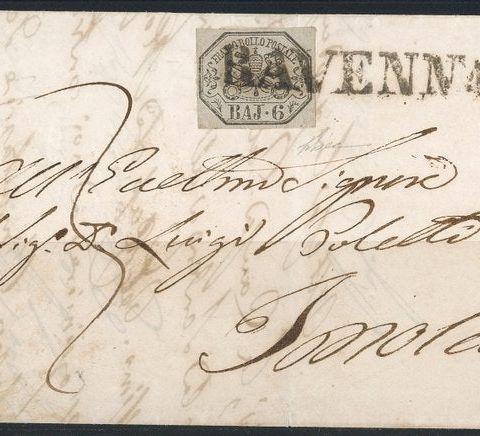 FRANCO BOLLO POSTALE
BAJ. 6
RAVENNA
All' Eccellmo Signore
Sig. Dr. Luigi Poletti
Imola